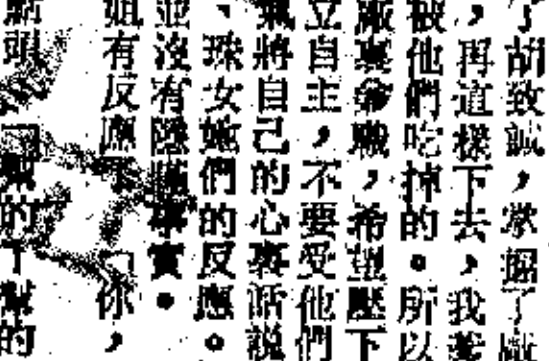 了胡致誠，掌握了廠
，再這樣下去，我
被他們吃掉的。所以
廠裏 職，希望壓下
立自主，不要受他們
氣將自己的心裏話說
、珠女她們的反應。
並沒有隱瞞事實。
姐有反應 「你，
點頭 的 的